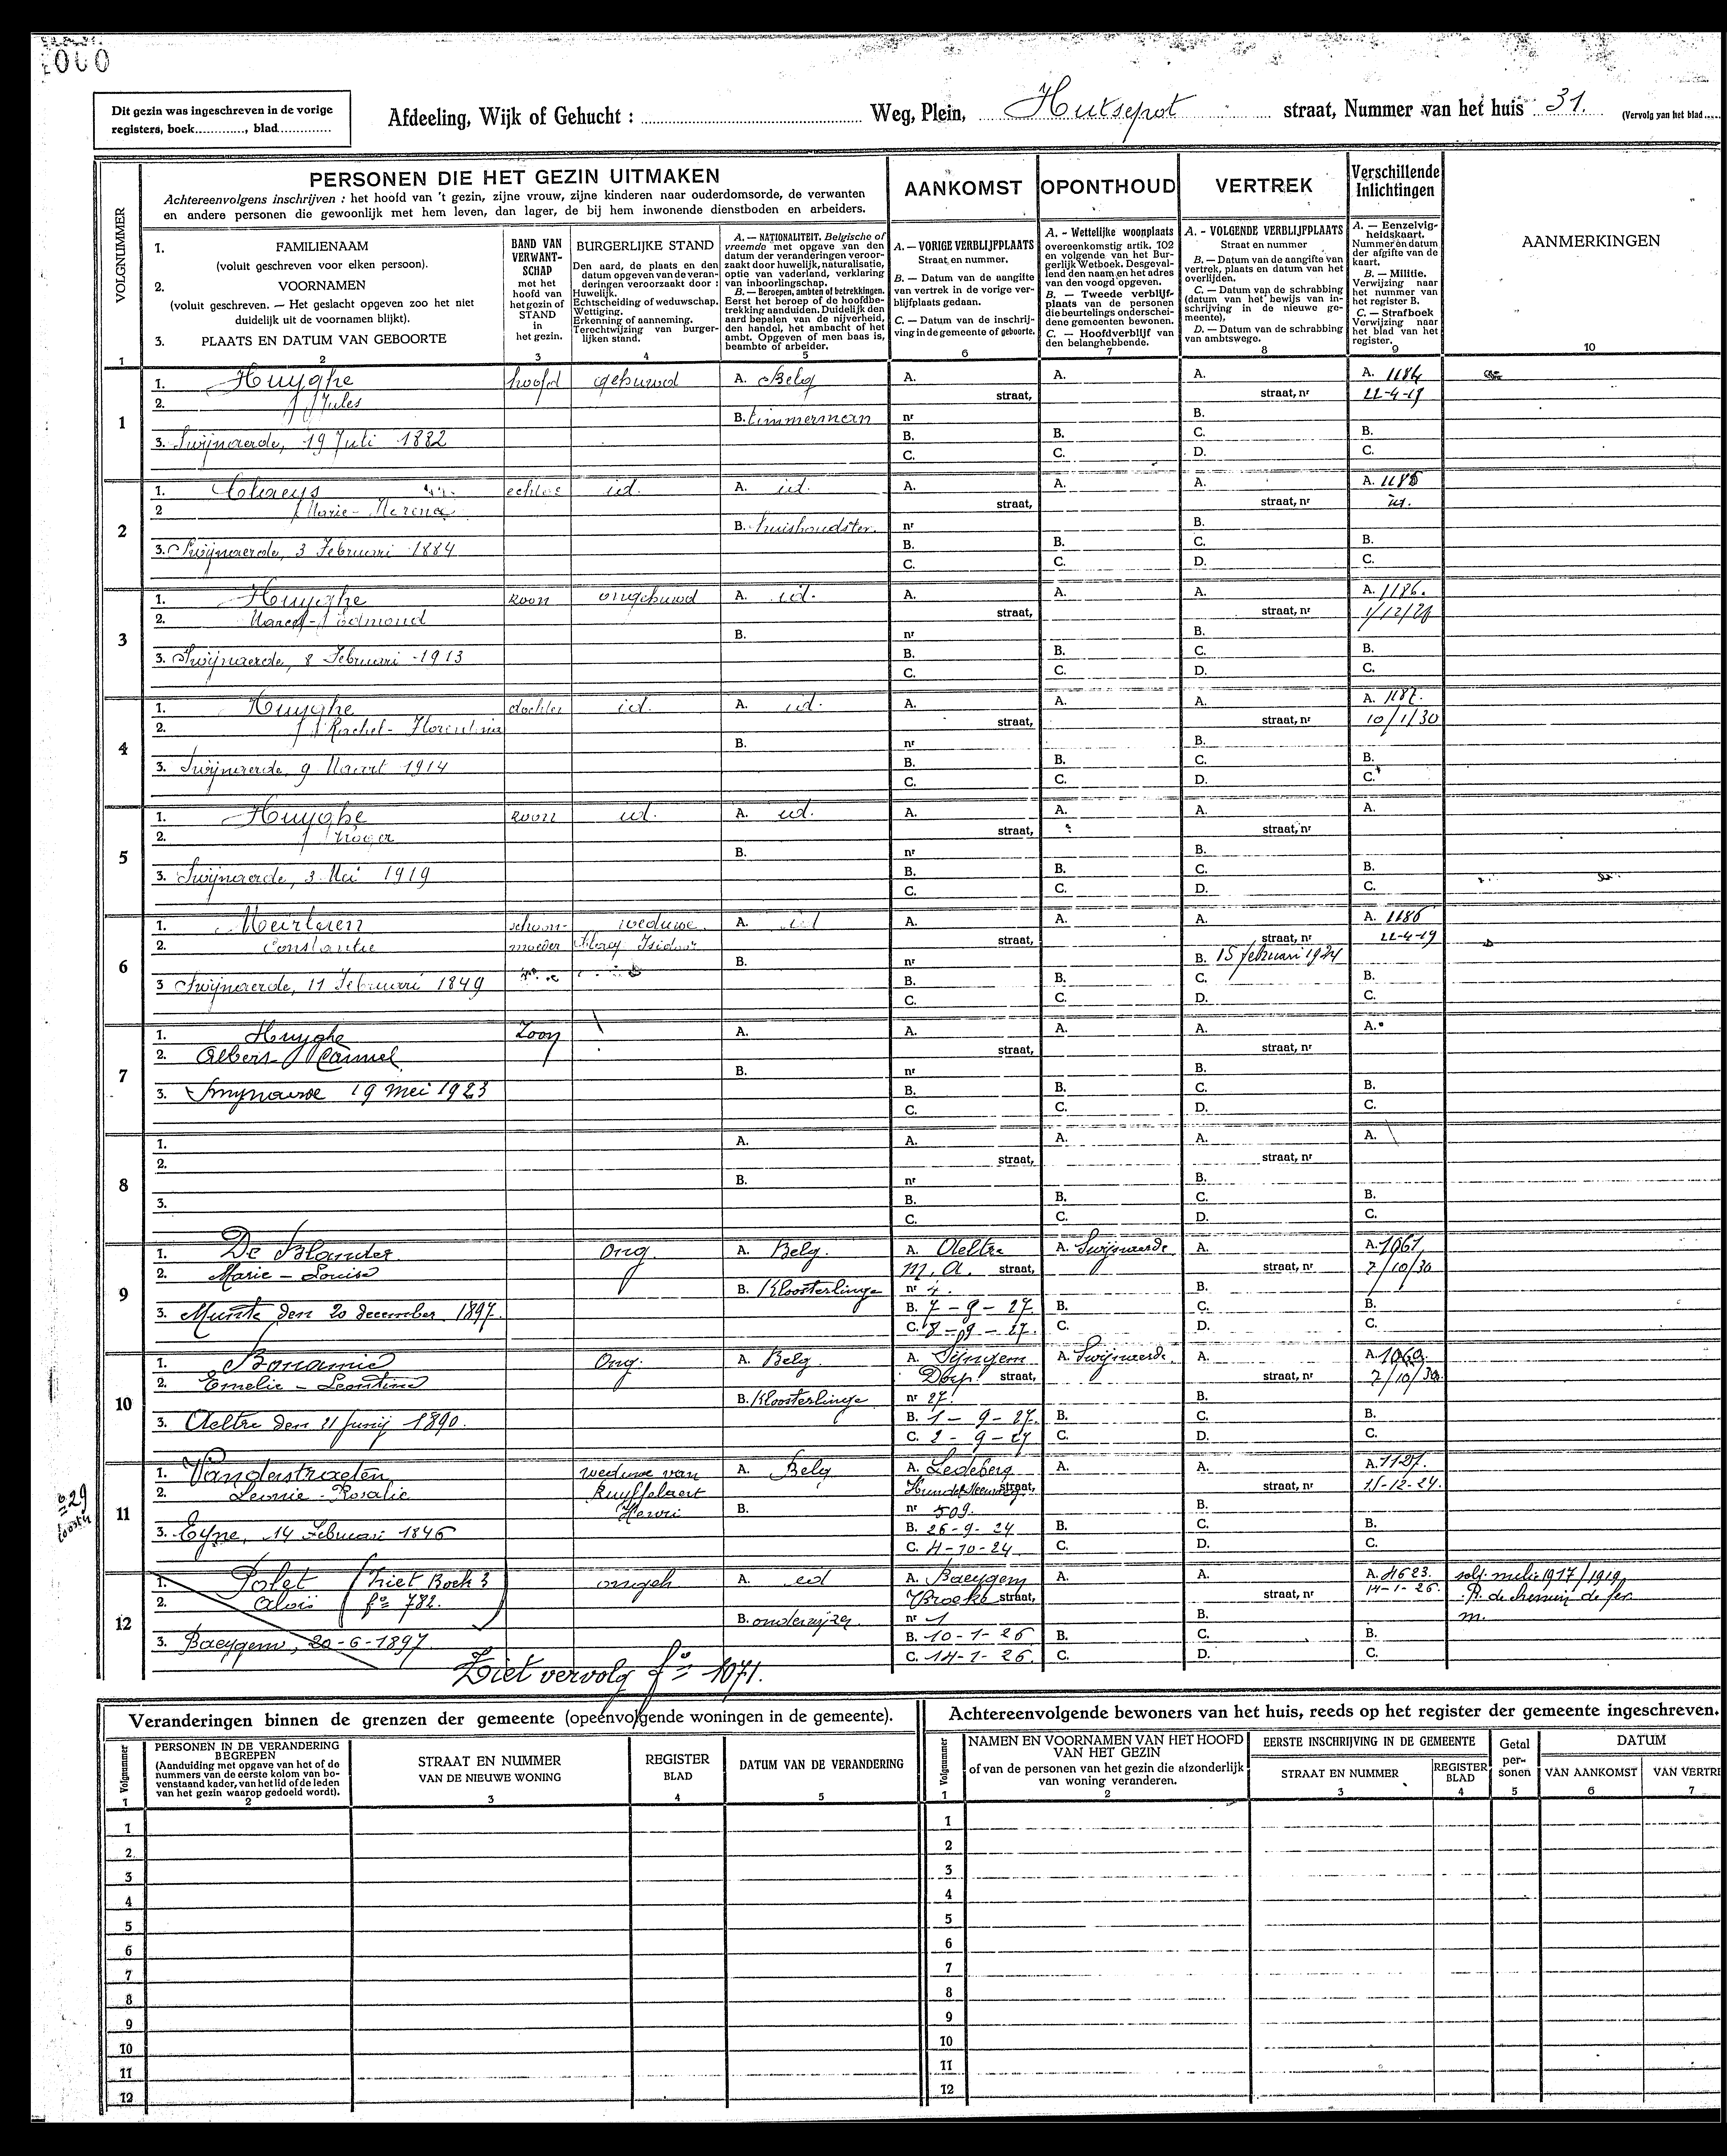 Dit gezin was ingeschreven in de vorige
registers, boek............, blad.............
Afdeeling, Wijk of Gehucht : Weg, Plein, Hutsepot straat, Nummer van het huis 31. (Vervolg van het blad
VOLGNUMMER
PERSONEN DIE HET GEZIN UITMAKEN
Achtereenvolgens inschrijven : het hoofd van 't gezin, zijne vrouw, zijne kinderen naar ouderdomsorde, de verwanten
en andere personen die gewoonlijk met hem leven, dan lager, de bij hem inwonende dienstboden en arbeiders.
AANKOMST
OPONTHOUD
VERTREK
Verschillende
Inlichtingen
AANMERKINGEN
1. FAMILIENAAM
(voluit geschreven voor elken persoon).
2. VOORNAMEN
(voluit geschreven. — Het geslacht opgeven zoo het niet
duidelijk uit de voornamen blijkt).
3. PLAATS EN DATUM VAN GEBOORTE
BAND VAN
VERWANT-
SCHAP
met het
hoofd van
het gezin of
STAND
in
het gezin.
BURGERLIJKE STAND
Den aard, de plaats en den
datum opgeven van de veran-
deringen veroorzaakt door :
Huwelijk.
Echtscheiding of weduwschap.
Wettiging.
Erkenning of aanneming.
Terechtwijzing van burger-
lijken stand.
A. — NATIONALITEIT. Belgische of
vreemde met opgave van den
datum der veranderingen veroor-
zaakt door huwelijk, naturalisatie,
optie van vaderland, verklaring
van inboorlingschap.
B. — Beroepen, ambten of betrekkingen.
Eerst het beroep of de hoofdbe-
trekking aanduiden. Duidelijk den
aard bepalen van de nijverheid,
den handel, het ambacht of het
ambt. Opgeven of men baas is,
beambte of arbeider.
A. — VORIGE VERBLIJFPLAATS
Straat en nummer.
B. — Datum van de aangifte
van vertrek in de vorige ver-
blijfplaats gedaan.
C. — Datum van de inschrij-
ving in de gemeente of geboorte.
A. - Wettelijke woonplaats
overeenkomstig artik. 102
en volgende van het Bur-
gerlijk Wetboek. Desgeval-
lend den naam en het adres
van den voogd opgeven.
B. — Tweede verblijf-
plaats van de personen
die beurtelings onderschei-
dene gemeenten bewonen.
C. — Hoofdverblijf van
den belanghebbende.
A. - VOLGENDE VERBLIJFPLAATS
Straat en nummer
B. — Datum van de aangifte van
vertrek, plaats en datum van het
overlijden.
C. — Datum van de schrabbing
(datum van het bewijs van in-
schrijving in de nieuwe ge-
meente),
D. — Datum van de schrabbing
van ambtswege.
A. — Eenzelvig-
heidskaart.
Nummer en datum
der afgifte van de
kaart.
B. — Militie.
Verwijzing naar
het nummer van
het register B.
C. — Strafboek
Verwijzing naar
het blad van het
register.
1 2 3 4 5 6 7 8 9 10
1. Huyghe hoofd gehuwd A. Belg A. A. A. A. 1184
2. Jules straat, straat, nr 22-4-19
1 B. timmerman nr B.
3. Swijnaerde, 19 Juli 1882 B. B. C. B.
C. C. D. C.
1. Claeys echtge id. A. id. A. A. A. A. 1185
2 Marie - straat, straat, nr id.
2 B. huishoudster. nr B.
3. Swijnaerde, 3 Februari 1884 B. B. C. B.
C. C. D. C.
1. Huyghe zoon ongehuwd A. id. A. A. A. A. 1186.
2. Marcel - Edmond straat, straat, nr
3 B. nr B.
3. Swijnaerde, 8 Februari 1913 B. B. C. B.
C. C. D. C.
1. Huyghe dochter id. A. id. A. A. A. A. 1187.
2. Rachel - Florentina straat, straat, nr 10/1/30
4 B. nr B.
3. Swijnaerde, 9 Maart 1914 B. B. C. B.
C. C. D. C.
1. Huyghe zoon id. A. id. A. A. A. A.
2. Roger straat, straat, nr
5 B. nr B.
3. Swijnaerde, 3 Mei 1919 B. B. C. B.
C. C. D. C.
1. Meirlaen schoon- weduwe A. id A. A. A. A. 1186
2. Constantie moeder Isidoor straat, straat, nr 22-4-19
6 B. nr B. 15 februari 1924
3 Swijnaerde, 11 Februari 1849 B. B. C. B.
C. C. D. C.
1. Huyghe Zoon A. A. A. A. A.
2. Albert Carmel straat, straat, nr
7 B. nr B.
3. Swynaerde 19 mei 1923 B. B. C. B.
C. C. D. C.
1. A. A. A. A. A.
2. straat, straat, nr
8 B. nr B.
3. B. B. C. B.
C. C. D. C.
1. De Blander Ong. A. Belg. A. Aeltre A. Swijnaerde A. A. 1061
2. Marie - Louise M. A. straat, straat, nr 7/10/30
9 B. Kloosterlinge nr 4. B.
3. Munte den 20 december 1897. B. 7 - 9 - 27. B. C. B.
C. 8 - 09 - 27. C. D. C.
1. Bonamie Ong. A. Belg. A. Synyem A. Swijnaerde A. A. 1060.
2. Emelie - Leontine Dorp straat, straat, nr 7/10/30.
10 B. Kloosterlinge nr 27. B.
3. Aeltre den 21 Junij 1890. B. 1 - 9 - 27. B. C. B.
C. 2 - 9 - 27 C. D. C.
1. Vanderstraeten weduwe van A. Belg A. Ledeberg A. A. A. 1127.
2. Leonie - Rosalie Ruyffelaert straat, straat, nr 15-12-24.
11 Henri B. nr 509. B.
3. Eyne, 14 Februari 1846 B. 26-9-24 B. C. B.
C. 4-10-24 C. D. C.
1. Polet (Ziet Boek 3 ongeh A. id A. Baeygem A. A. A. 4623. solj. milic 1917/1919
2. Aloïs fo 782. Broeke straat, straat, nr 14-1-26. R. de chemin de fer
12 B. onderwijzer nr 1 B. m.
3. Baeygem, 20-6-1897 B. 10-1-26 B. C. B.
C. 14-1-26. C. D. C.
Ziet vervolg fo 1071.
Veranderingen binnen de grenzen der gemeente (opeenvolgende woningen in de gemeente).
Achtereenvolgende bewoners van het huis, reeds op het register der gemeente ingeschreven.
Volgnummer
PERSONEN IN DE VERANDERING
BEGREPEN
(Aanduiding met opgave van het of de
nummers van de eerste kolom van bo-
venstaand kader, van het lid of de leden
van het gezin waarop gedoeld wordt).
STRAAT EN NUMMER
VAN DE NIEUWE WONING
REGISTER
BLAD
DATUM VAN DE VERANDERING
Volgnummer
NAMEN EN VOORNAMEN VAN HET HOOFD
VAN HET GEZIN
of van de personen van het gezin die afzonderlijk
van woning veranderen.
EERSTE INSCHRIJVING IN DE GEMEENTE
STRAAT EN NUMMER
REGISTER
BLAD
Getal
per-
sonen
DATUM
VAN AANKOMST
VAN VERTRE
1 2 3 4 5 1 2 3 4 5 6 7
1 1
2 2
3 3
4 4
5 5
6 6
7 7
8 8
9 9
10 10
11 11
12 12